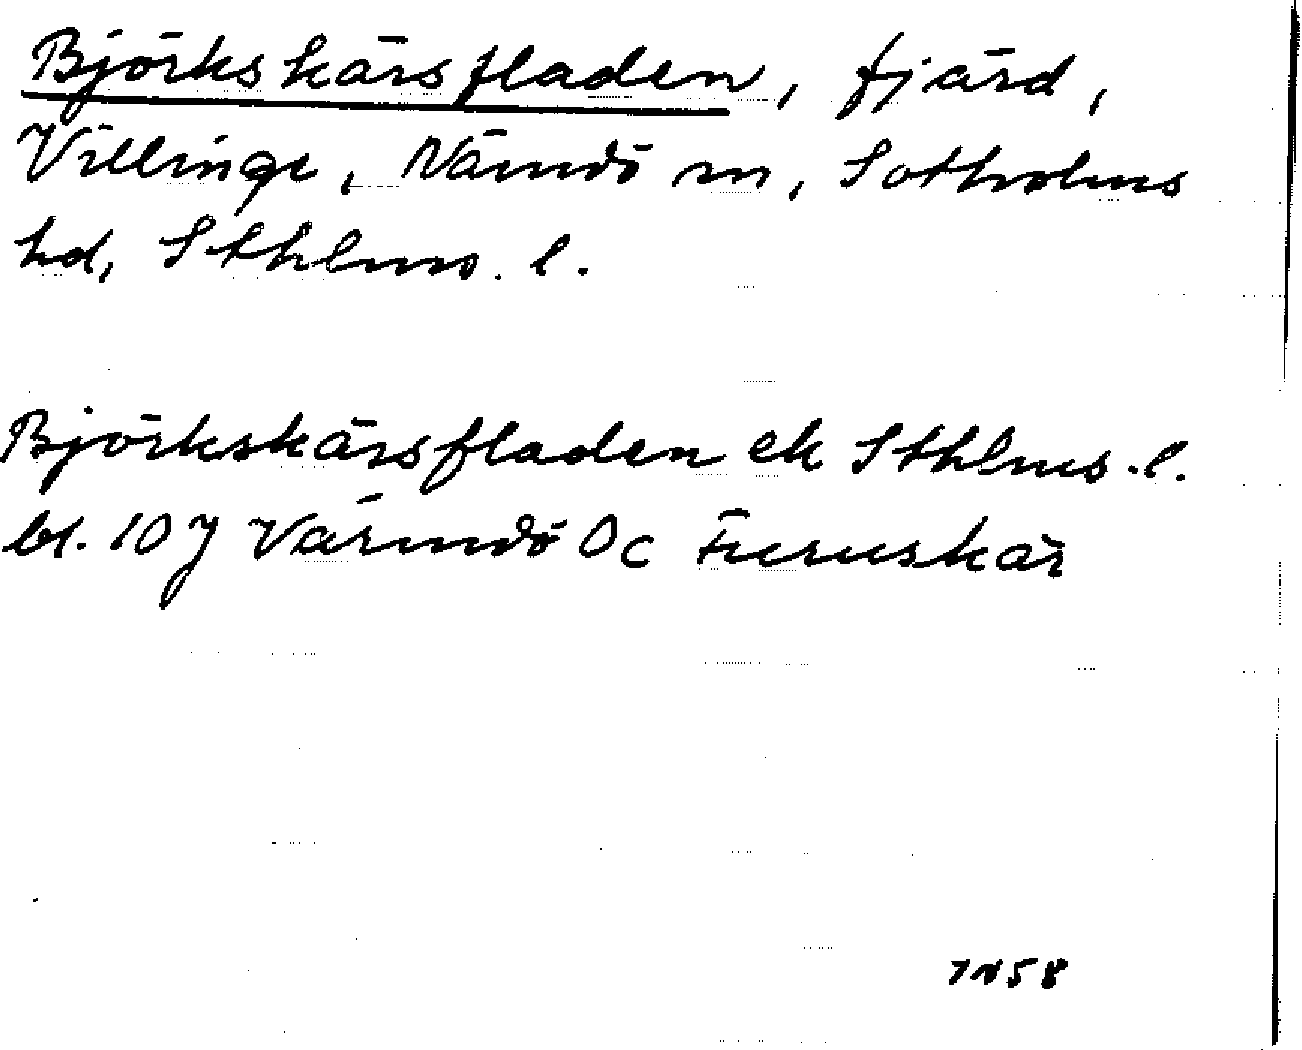 Björkskärsfladen, fjärd,
Villinge, Nämdö sn, Sotholms
hd, Sthlms. l.
Björkskärsfladen ek Sthlms. l.
bl. 107 Värmdö Öc Furuskär
7N58